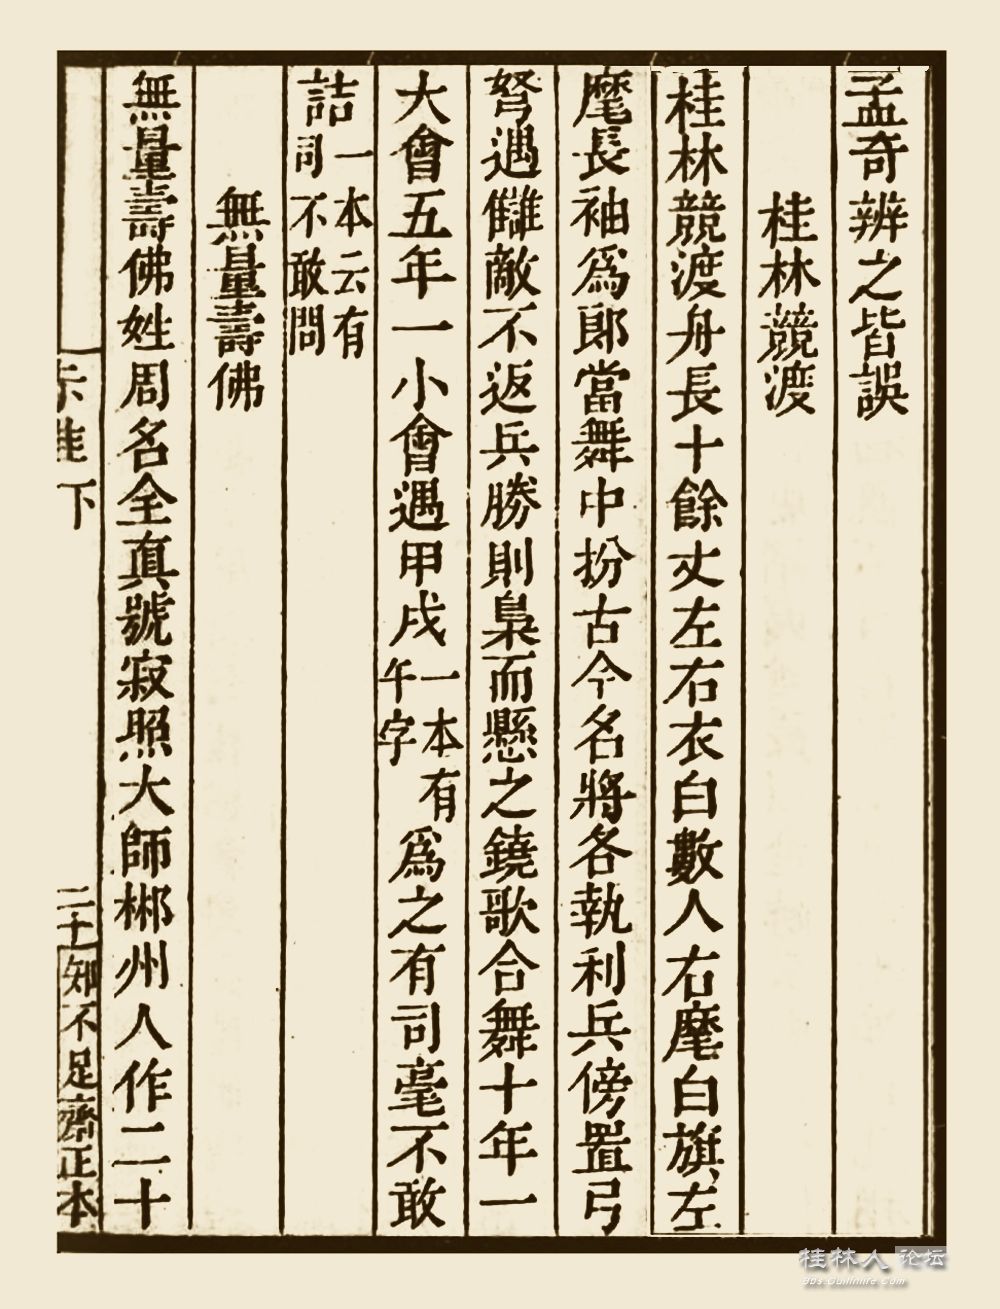 孟奇辨之皆誤
桂林競渡
桂林競渡舟長十餘丈左右衣白數人右麾白旗左
麾長袖爲郎當舞中扮古今名將各執利兵傍置弓
弩遇讎敵不返兵勝則梟而懸之鐃歌合舞十年一
大會五年一小會遇甲戌一本有午字爲之有司毫不敢
詰一本云有司不敢問
無量壽佛
無量壽佛姓周名全真號寂照大師郴州人作二十
下
二十
知不足齋正本
桂林人论坛
bbs.Guilinlife.com